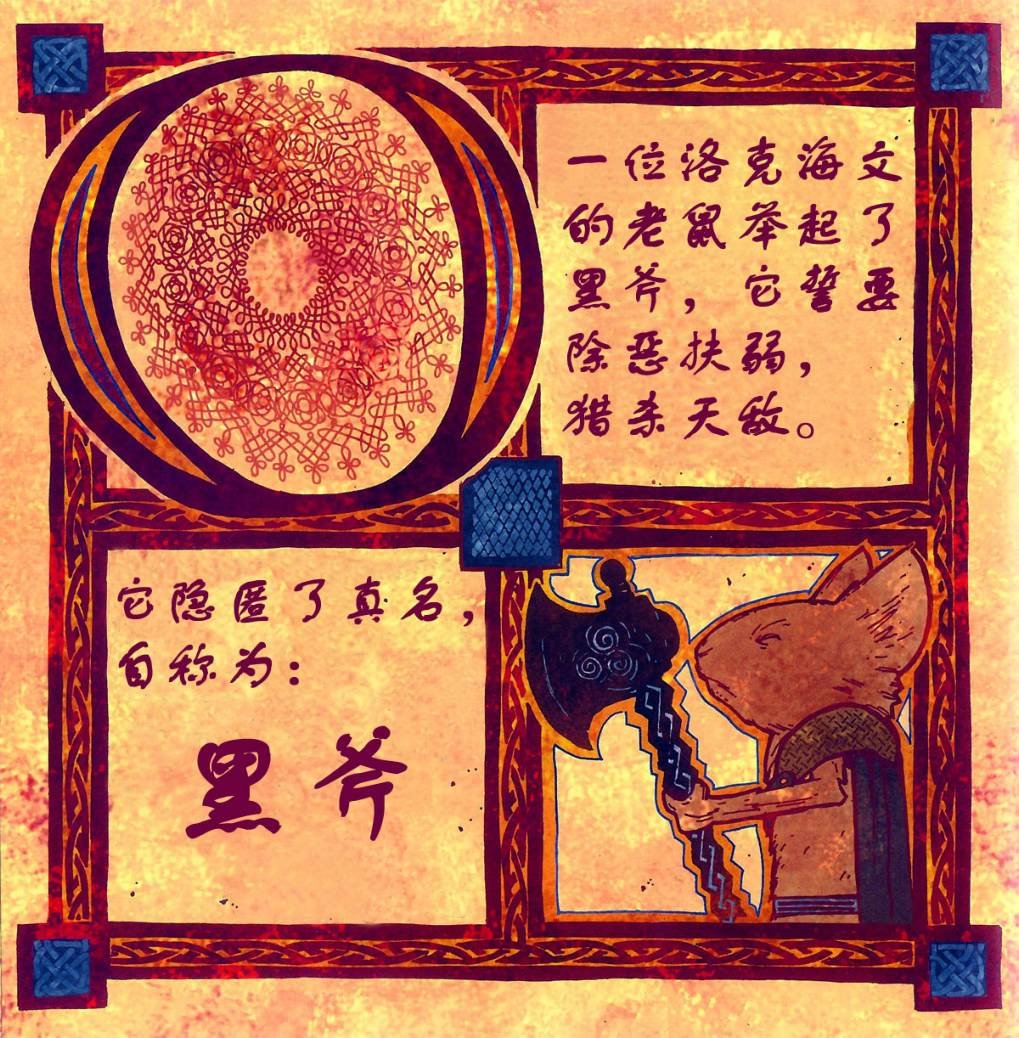 一位洛克海文
的老鼠举起了
黑斧，它誓要
除恶扶弱，
猎杀天敌。
它隐匿了真名，
自称为：
黑斧